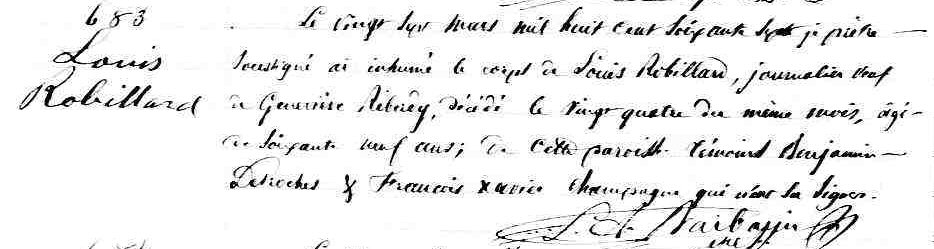 683
Louis
Robillard
Le vingt sept mars mil huit cent soixante sept je prêtre
soussigné ai inhumé le corps de Louis Robillard, journalier veuf
de Geneviève décédé le vingt quatre du même mois, âgé
de soixante neuf ans; de cette paroisse. Témoins Benjamin
Desroches & François Xavier Champagne qui n'ont su signer.